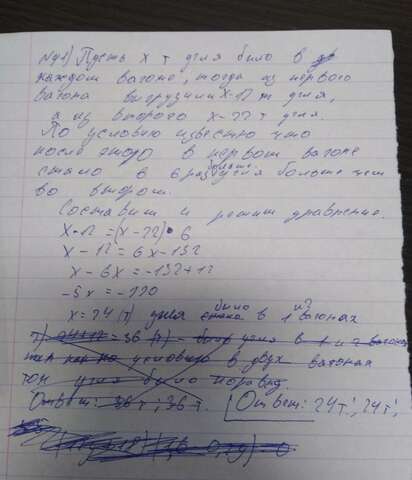 №1) Пусть х т угля было в
каждом вагоне, тогда из первого
вагона выгрузили х-12 т угля,
а из второго х-22 т угля.
По условию известно что
после этого в первом вагоне
стало в 6 раз угля больше чем
во втором.
Составим и решим уравнение.
х-12=(х-22)•6
х-12=6х-132
х-6х=-132+12
-5х=-120
х=24(т) угля было в 1 и 2 вагонах
=36 (т) - было угля в 1 и 2 вагонах
условию в двух вагонах
угля было поровну.
Ответ: 36 т; 36 т. Ответ: 24 т; 24 т;